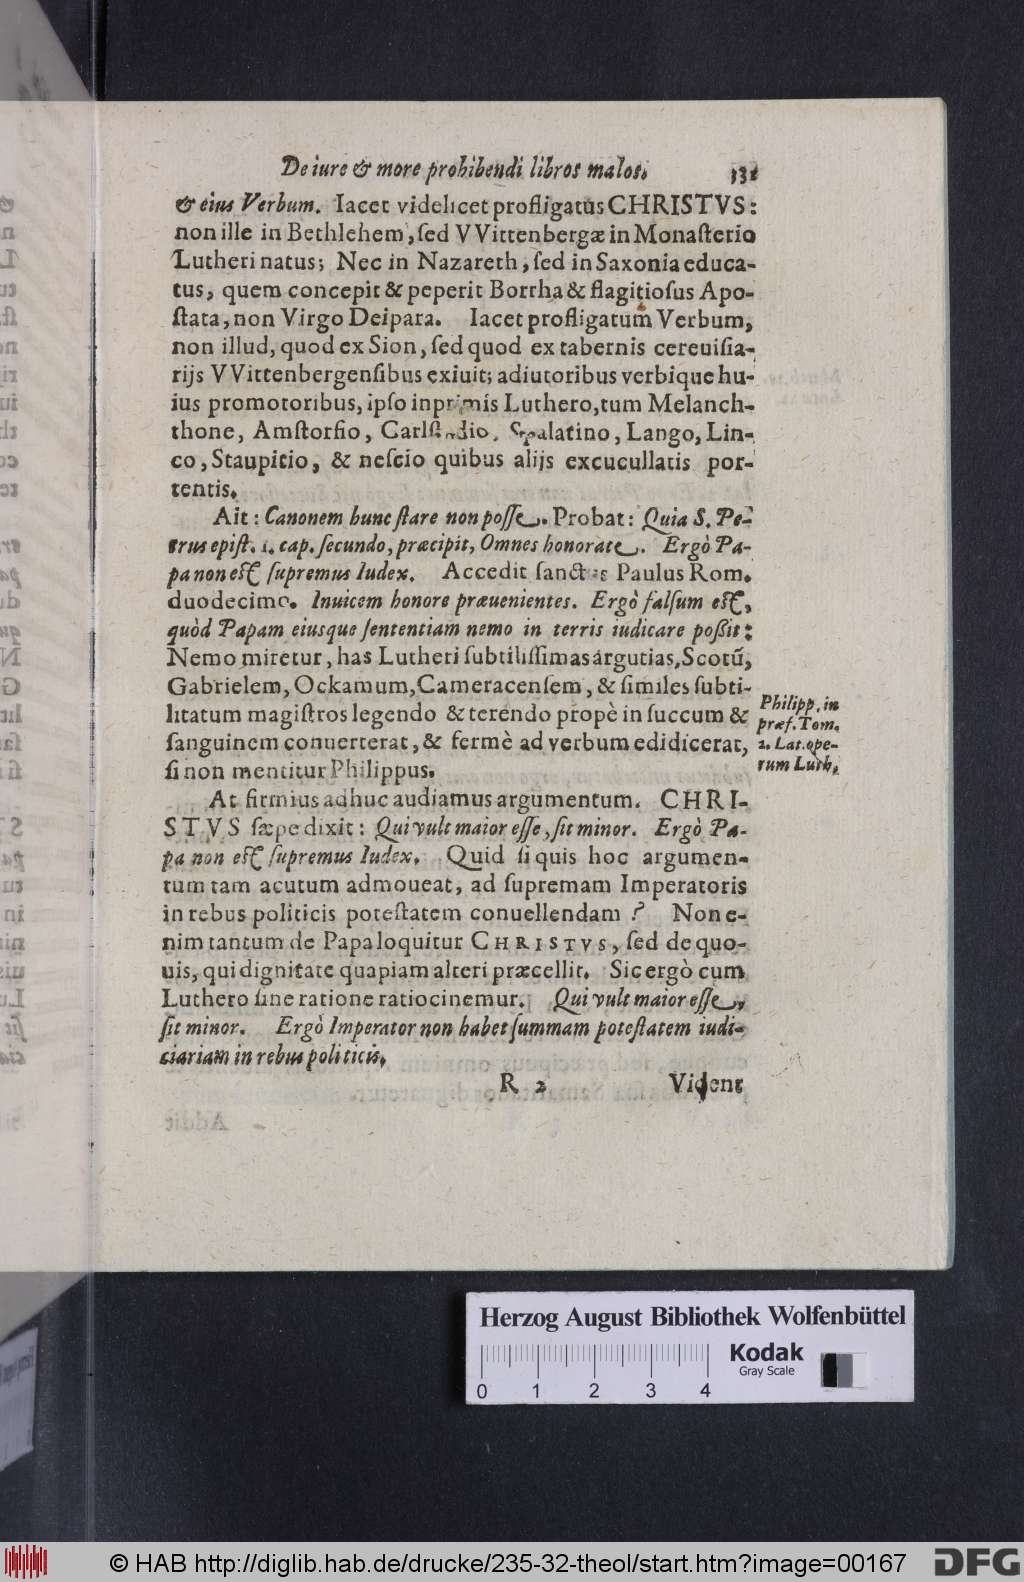 De iure & more prohibendi libros malos. 131
& eius Verbum. Iacet videlicet profligatus CHRISTVS:
non ille in Bethlehem, ſed VVittenbergæ in Monaſterio
Lutheri natus; Nec in Nazareth, ſed in Saxonia educa-
tus, quem concepit & peperit Borrha & flagitioſus Apo-
ſtata, non Virgo Deipara. Iacet profligatum Verbum,
non illud, quod ex Sion, ſed quod ex tabernis cereuiſia-
rijs VVittenbergenſibus exiuit; adiutoribus verbique hu-
ius promotoribus, ipſo inprimis Luthero, tum Melanch-
thone, Amſtorfio, Carlſtadio, Spalatino, Lango, Lin-
co, Staupitio, & neſcio quibus alijs excucullatis por-
tentis.
Ait: Canonem hunc ſtare non poſſe. Probat: Quia S. Pe-
trus epiſt. 1. cap. ſecundo, præcipit, Omnes honorate. Ergò Pa-
pa non eſt ſupremus Iudex. Accedit ſanctus Paulus Rom.
duodecimo. Inuicem honore præuenientes. Ergò falſum eſt,
quòd Papam eiusque ſententiam nemo in terris iudicare poßit:
Nemo miretur, has Lutheri ſubtiliſſimas argutias, Scotū,
Gabrielem, Ockamum, Cameracenſem, & ſimiles ſubti-
litatum magiſtros legendo & terendo propè in ſuccum &
ſanguinem conuerterat, & fermè ad verbum edidicerat,
ſi non mentitur Philippus.
Philipp. in
præf. Tom.
2. Lat. ope-
rum Luth.
At firmius adhuc audiamus argumentum. CHRI-
STVS ſæpe dixit: Qui vult maior eſſe, ſit minor. Ergò Pa-
pa non eſt ſupremus Iudex. Quid ſi quis hoc argumen-
tum tam acutum admoueat, ad ſupremam Imperatoris
in rebus politicis poteſtatem conuellendam? Non e-
nim tantum de Papa loquitur CHRISTVS, ſed de quo-
uis, qui dignitate quapiam alteri præcellit. Sic ergò cum
Luthero ſine ratione ratiocinemur. Qui vult maior eſſe,
ſit minor. Ergò Imperator non habet ſummam poteſtatem iudi-
ciariam in rebus politicis.
R 2 Vident
Herzog August Bibliothek Wolfenbüttel
Kodak
Gray Scale
0 1 2 3 4
© HAB http://diglib.hab.de/drucke/235-32-theol/start.htm?image=00167
DFG